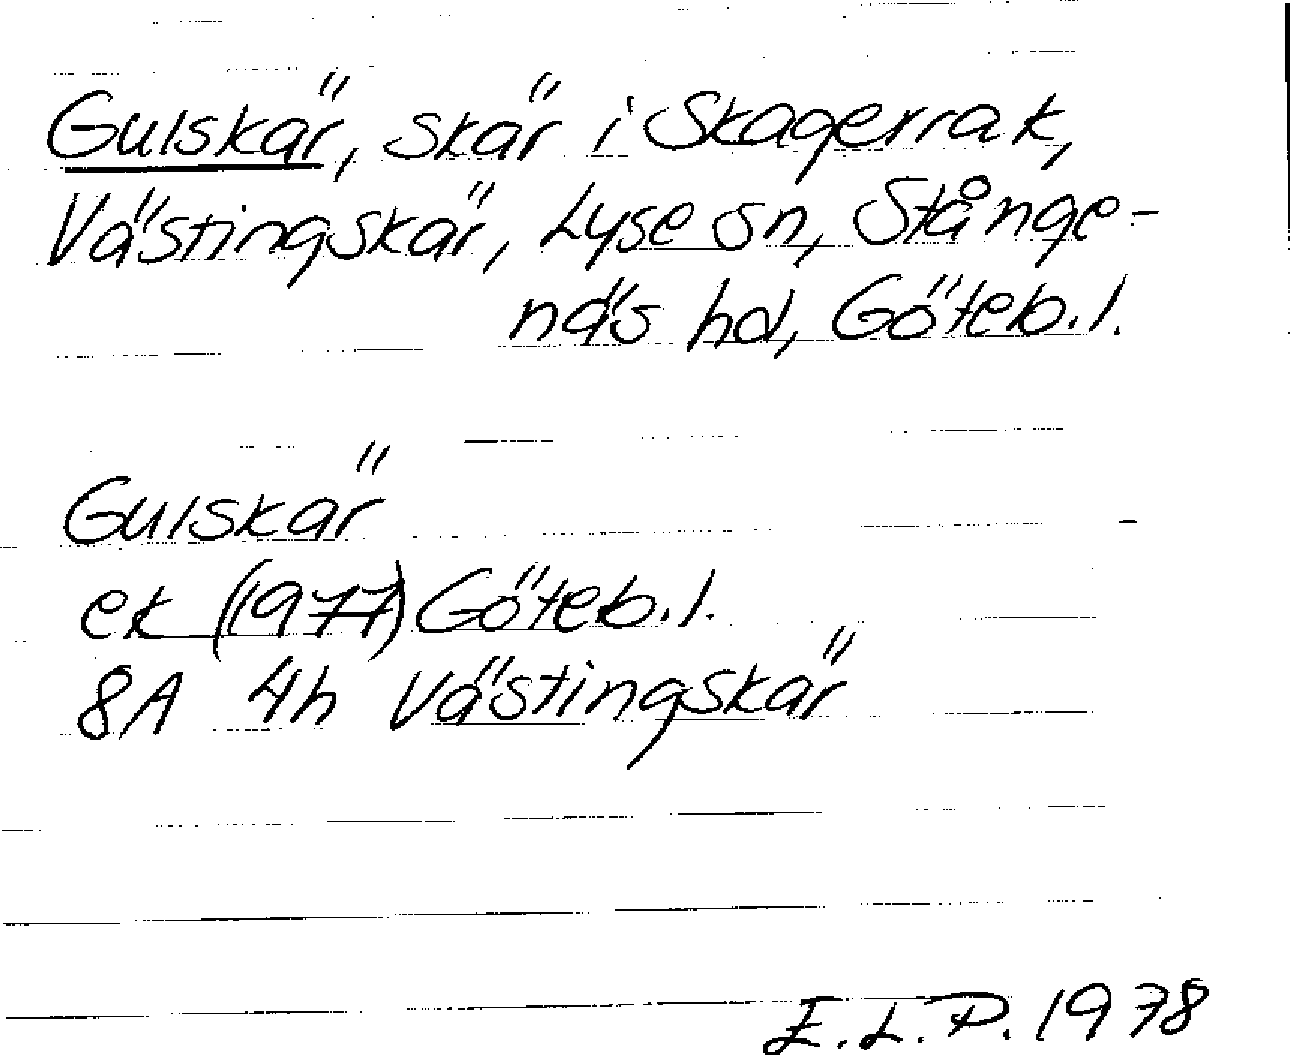 Gulskär, skär i Skagerrak,
Västingskär, Lyse sn, Stånge-
näs hd, Göteb.l.
Gulskär
ek (1977) Göteb.l.
8A 4h Västingskär
E.L.P. 1978